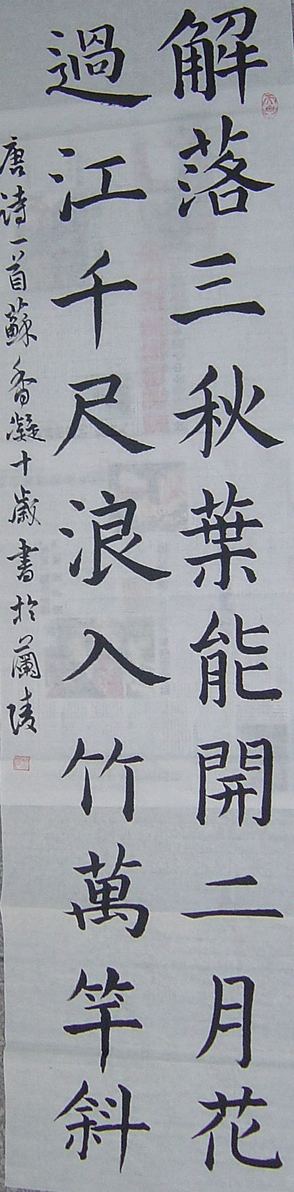 解落三秋葉能開二月花
過江千尺浪入竹萬竿斜
唐诗一首蘇香凝十歲書於蘭陵